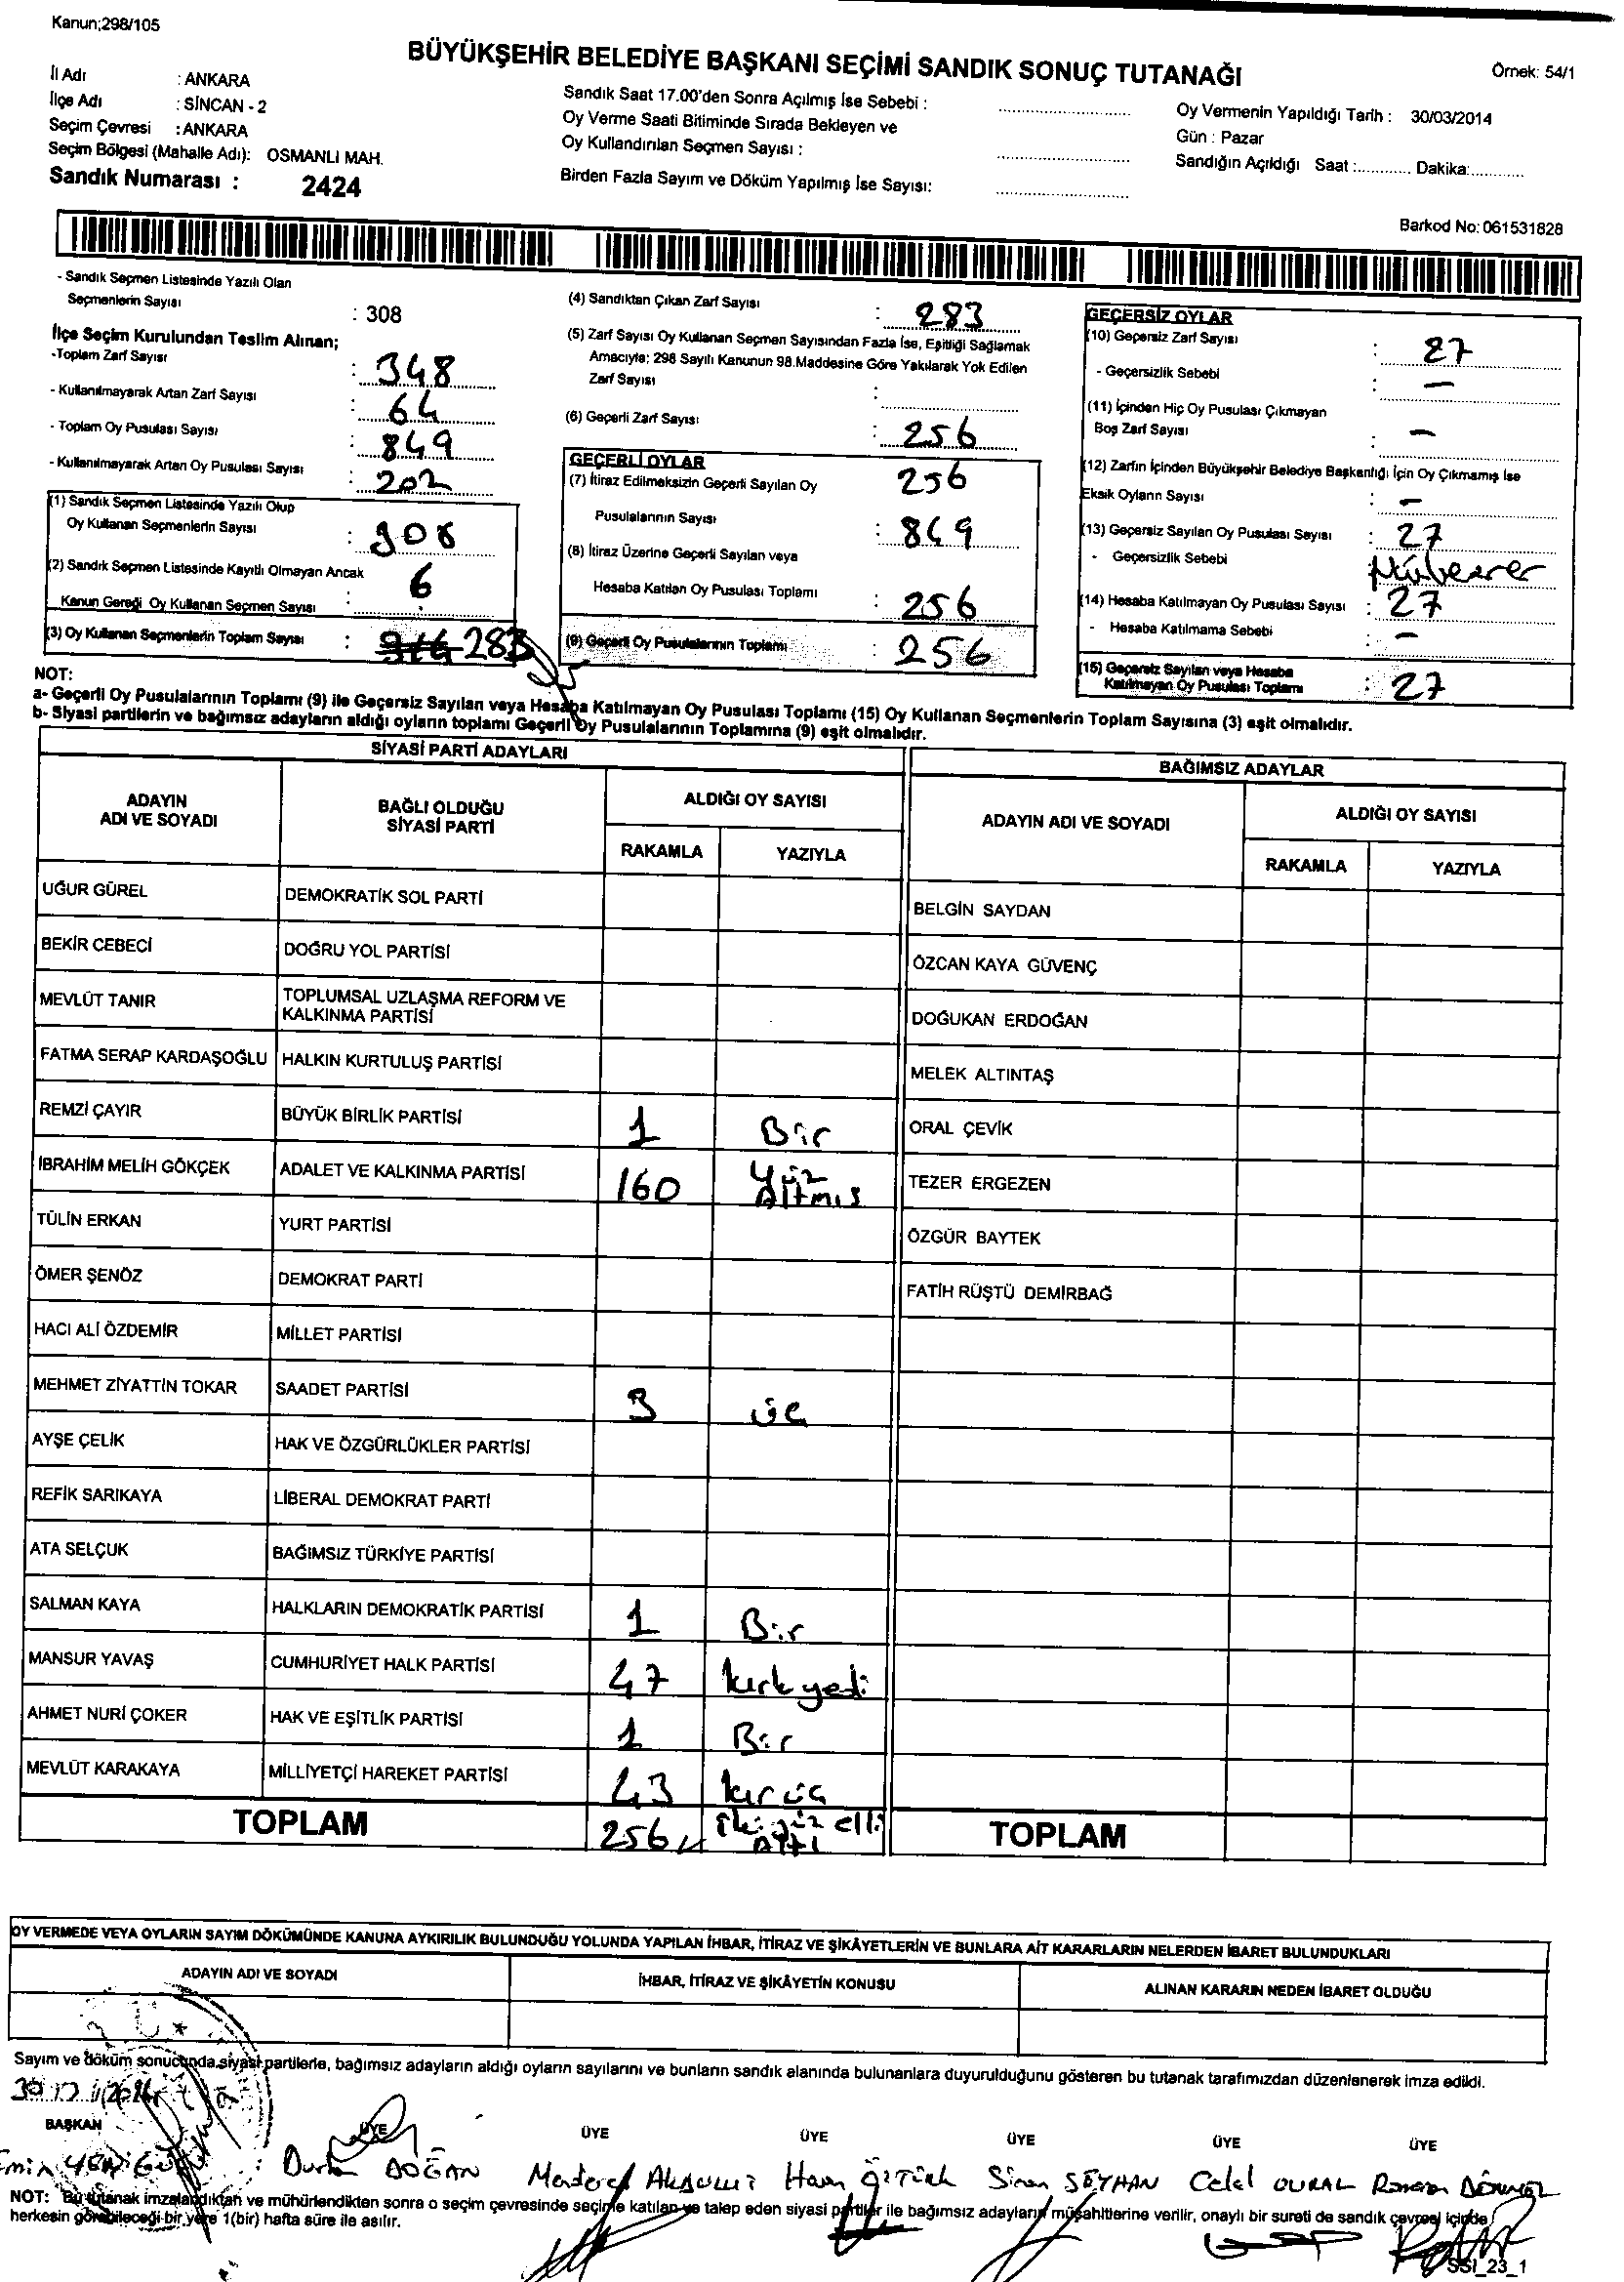 Kanun;298/105
BÜYÜKŞEHİR BELEDİYE BAŞKANI SEÇİMİ SANDIK SONUÇ TUTANAĞI
Örnek: 54/1
İl Adı : ANKARA
İlçe Adı : SİNCAN - 2
Seçim Çevresi : ANKARA
Seçim Bölgesi (Mahalle Adı): OSMANLI MAH.
Sandık Numarası : 2424
Sandık Saat 17.00'den Sonra Açılmış İse Sebebi :
Oy Verme Saati Bitiminde Sırada Bekleyen ve
Oy Kullandırılan Seçmen Sayısı :
Birden Fazla Sayım ve Döküm Yapılmış İse Sayısı:
Oy Vermenin Yapıldığı Tarih : 30/03/2014
Gün : Pazar
Sandığın Açıldığı Saat :............ Dakika:............
Barkod No: 061531828
- Sandık Seçmen Listesinde Yazılı Olan
Seçmenlerin Sayısı : 308
İlçe Seçim Kurulundan Teslim Alınan;
-Toplam Zarf Sayısı : 348
- Kullanılmayarak Artan Zarf Sayısı : 64
- Toplam Oy Pusulası Sayısı : 849
- Kullanılmayarak Artan Oy Pusulası Sayısı : 202
(1) Sandık Seçmen Listesinde Yazılı Olup
Oy Kullanan Seçmenlerin Sayısı : 308
(2) Sandık Seçmen Listesinde Kayıtlı Olmayan Ancak
Kanun Gereği Oy Kullanan Seçmen Sayısı : 6
(3) Oy Kullanan Seçmenlerin Toplam Sayısı : 283
(4) Sandıktan Çıkan Zarf Sayısı : 283
(5) Zarf Sayısı Oy Kullanan Seçmen Sayısından Fazla İse, Eşitliği Sağlamak
Amacıyla; 298 Sayılı Kanunun 98.Maddesine Göre Yakılarak Yok Edilen
Zarf Sayısı :
(6) Geçerli Zarf Sayısı: : 256
GEÇERLİ OYLAR
(7) İtiraz Edilmeksizin Geçerli Sayılan Oy 256
Pusulalarının Sayısı : 849
(8) İtiraz Üzerine Geçerli Sayılan veya
Hesaba Katılan Oy Pusulası Toplamı : 256
(9) Geçerli Oy Pusulalarının Toplamı : 256
GEÇERSİZ OYLAR
(10) Geçersiz Zarf Sayısı : 27
- Geçersizlik Sebebi : –
(11) İçinden Hiç Oy Pusulası Çıkmayan
Boş Zarf Sayısı : –
(12) Zarfın İçinden Büyükşehir Belediye Başkanlığı İçin Oy Çıkmamış İse
Eksik Oyların Sayısı : –
(13) Geçersiz Sayılan Oy Pusulası Sayısı : 27
- Geçersizlik Sebebi :
(14) Hesaba Katılmayan Oy Pusulası Sayısı : 27
- Hesaba Katılmama Sebebi : –
(15) Geçersiz Sayılan veya Hesaba
Katılmayan Oy Pusulası Toplamı : 27
NOT:
a- Geçerli Oy Pusulalarının Toplamı (9) ile Geçersiz Sayılan veya Hesaba Katılmayan Oy Pusulası Toplamı (15) Oy Kullanan Seçmenlerin Toplam Sayısına (3) eşit olmalıdır.
b- Siyasi partilerin ve bağımsız adayların aldığı oyların toplamı Geçerli Oy Pusulalarının Toplamına (9) eşit olmalıdır.
SİYASİ PARTİ ADAYLARI
ADAYIN ADI VE SOYADI
BAĞLI OLDUĞU SİYASİ PARTİ
ALDIĞI OY SAYISI
RAKAMLA YAZIYLA
UĞUR GÜREL DEMOKRATİK SOL PARTİ
BEKİR CEBECİ DOĞRU YOL PARTİSİ
MEVLÜT TANIR TOPLUMSAL UZLAŞMA REFORM VE
KALKINMA PARTİSİ
FATMA SERAP KARDAŞOĞLU HALKIN KURTULUŞ PARTİSİ
REMZİ ÇAYIR BÜYÜK BİRLİK PARTİSİ 1 Bir
İBRAHİM MELİH GÖKÇEK ADALET VE KALKINMA PARTİSİ 160 Yüz Altmış
TÜLİN ERKAN YURT PARTİSİ
ÖMER ŞENÖZ DEMOKRAT PARTİ
HACI ALİ ÖZDEMİR MİLLET PARTİSİ
MEHMET ZİYATTİN TOKAR SAADET PARTİSİ 3 üç
AYŞE ÇELİK HAK VE ÖZGÜRLÜKLER PARTİSİ
REFİK SARIKAYA LİBERAL DEMOKRAT PARTİ
ATA SELÇUK BAĞIMSIZ TÜRKİYE PARTİSİ
SALMAN KAYA HALKLARIN DEMOKRATİK PARTİSİ 1 Bir
MANSUR YAVAŞ CUMHURİYET HALK PARTİSİ 47 kırkyedi
AHMET NURİ ÇOKER HAK VE EŞİTLİK PARTİSİ 1 Bir
MEVLÜT KARAKAYA MİLLİYETÇİ HAREKET PARTİSİ 43 kır üç
TOPLAM 256 ikiyüz elli Altı
BAĞIMSIZ ADAYLAR
ADAYIN ADI VE SOYADI
ALDIĞI OY SAYISI
RAKAMLA YAZIYLA
BELGİN SAYDAN
ÖZCAN KAYA GÜVENÇ
DOĞUKAN ERDOĞAN
MELEK ALTINTAŞ
ORAL ÇEVİK
TEZER ERGEZEN
ÖZGÜR BAYTEK
FATİH RÜŞTÜ DEMİRBAĞ
TOPLAM
OY VERMEDE VEYA OYLARIN SAYIM DÖKÜMÜNDE KANUNA AYKIRILIK BULUNDUĞU YOLUNDA YAPILAN İHBAR, İTİRAZ VE ŞİKÂYETLERİN VE BUNLARA AİT KARARLARIN NELERDEN İBARET BULUNDUKLARI
ADAYIN ADI VE SOYADI
İHBAR, İTİRAZ VE ŞİKÂYETİN KONUSU
ALINAN KARARIN NEDEN İBARET OLDUĞU
Sayım ve döküm sonucunda siyasi partilerle, bağımsız adayların aldığı oyların sayılarını ve bunların sandık alanında bulunanlara duyurulduğunu gösteren bu tutanak tarafımızdan düzenlenerek imza edildi.
BAŞKAN ÜYE ÜYE ÜYE ÜYE ÜYE ÜYE
DOĞAN Sinan SEYHAN Celal
NOT: Bu tutanak imzalandıktan ve mühürlendikten sonra o seçim çevresinde seçime katılan ve talep eden siyasi partiler ile bağımsız adayların müşahitlerine verilir, onaylı bir sureti de sandık çevresi içinde
herkesin görebileceği bir yere 1(bir) hafta süre ile asılır.
SSI_23_1